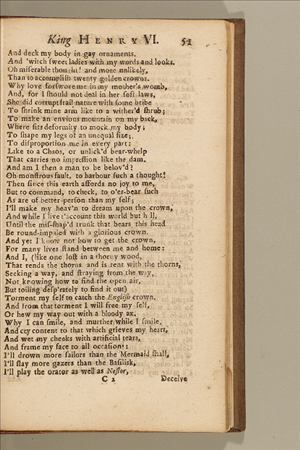 King HENRY VI. 52
And deck my body in gay ornaments,
And 'witch sweet ladies with my words and looks.
Oh miserable thought! and more unlikely,
Than to accomplish twenty golden crowns.
Why love forswore me in my mother's womb,
And, for I should not deal in her soft laws,
She did corrupt frail nature with some bribe
To shrink mine arm like to a wither'd shrub;
To make an envious mountain on my back,
Where sits deformity to mock my body;
To shape my legs of an unequal size;
To disproportion me in every part:
Like to a Chaos, or unlick'd bear-whelp
That carries no impression like the dam.
And am I then a man to be belov'd?
Oh monstrous fault, to harbour such a thought!
Then since this earth affords no joy to me,
But to command, to check, to o'er-bear such
As are of better person than my self;
I'll make my heav'n to dream upon the crown,
And while I live t'account this world but hell,
Until the mis-shap'd trunk that bears this head
Be round-impaled with a glorious crown.
And yet I know not how to get the crown,
For many lives stand between me and home:
And I, (like one lost in a thorny wood,
That rends the thorns and is rent with the thorns,
Seeking a way, and straying from the way,
Not knowing how to find the open air,
But toiling desp'rately to find it out)
Torment my self to catch the English crown.
And from that torment I will free my self,
Or hew my way out with a bloody ax.
Why I can smile, and murther while I smile,
And cry content to that which grieves my heart,
And wet my cheeks with artificial tears,
And frame my face to all occasions:
I'll drown more sailors than the Mermaid shall,
I'll slay more gazers than the Basilisk,
I'll play the orator as well as Nestor,
C 2 Deceive